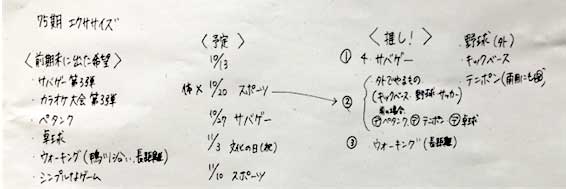 75期 エクササイズ
〈前期末に出た希望〉
・サバゲー第3弾
・カラオケ大会 第3弾
・ペタンク
・卓球
・ウォーキング(鴨川沿い、長距離)
・シンプルなゲーム
〈予定〉
10/13
体× 10/20 スポーツ
10/27 サバゲー
11/3 文化の日(祝)
11/10 スポーツ
〈推し!〉
① 4. サバゲー
② ・外でやるもの
(キックベース・野球・サッカー)
雨の場合
ペタンク テニポン 卓球
③ ウォーキング(長距離)
・野球(外)
・キックベース
・テニポン(雨用にも